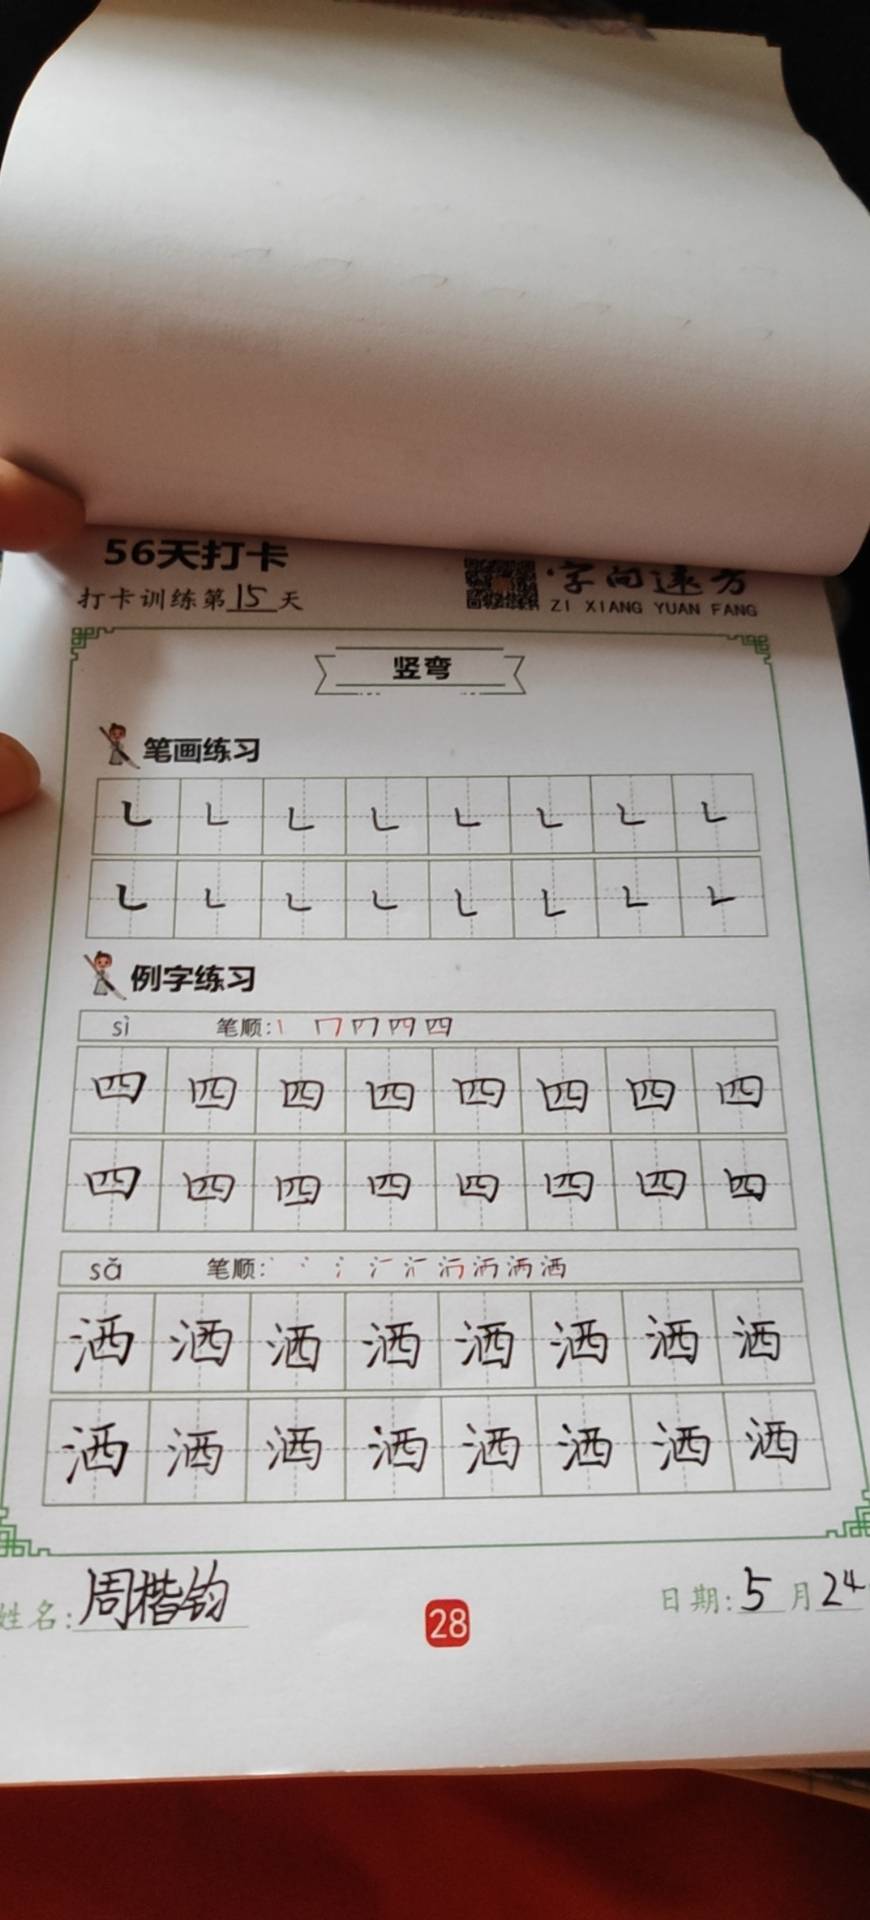 56天打卡
打卡训练第15天
字向远方
ZI XIANG YUAN FANG
竖弯
笔画练习
㇄ ㇄ ㇄ ㇄ ㇄ ㇄ ㇄ ㇄
㇄ ㇄ ㇄ ㇄ ㇄ ㇄ ㇄ ㇄
例字练习
sì 笔顺: 四
四 四 四 四 四 四 四 四
四 四 四 四 四 四 四 四
sǎ 笔顺: 洒
洒 洒 洒 洒 洒 洒 洒 洒
洒 洒 洒 洒 洒 洒 洒 洒
姓名: 周楷钧
28
日期: 5月24